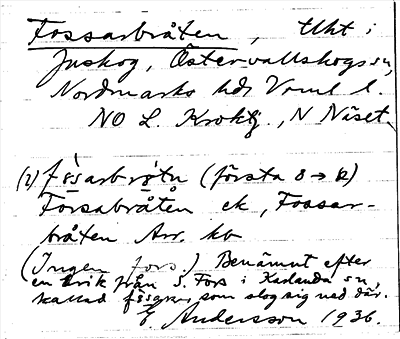 Fossarbråten, tkt i
Juskog, Östervallskogs sn,
Nordmarks hd. Vrml l.
NO L. Kroktj., N Näset.
(2) fòsarbrǫ̀tn (första
Forsabråten ek, Fossar-
bråten Arr. kb
(Ingen fors.) Benämnt efter
en Erik från S. Fors i Karlanda sn,
kallad som slog sig ned där.
E. Andersson 1936.